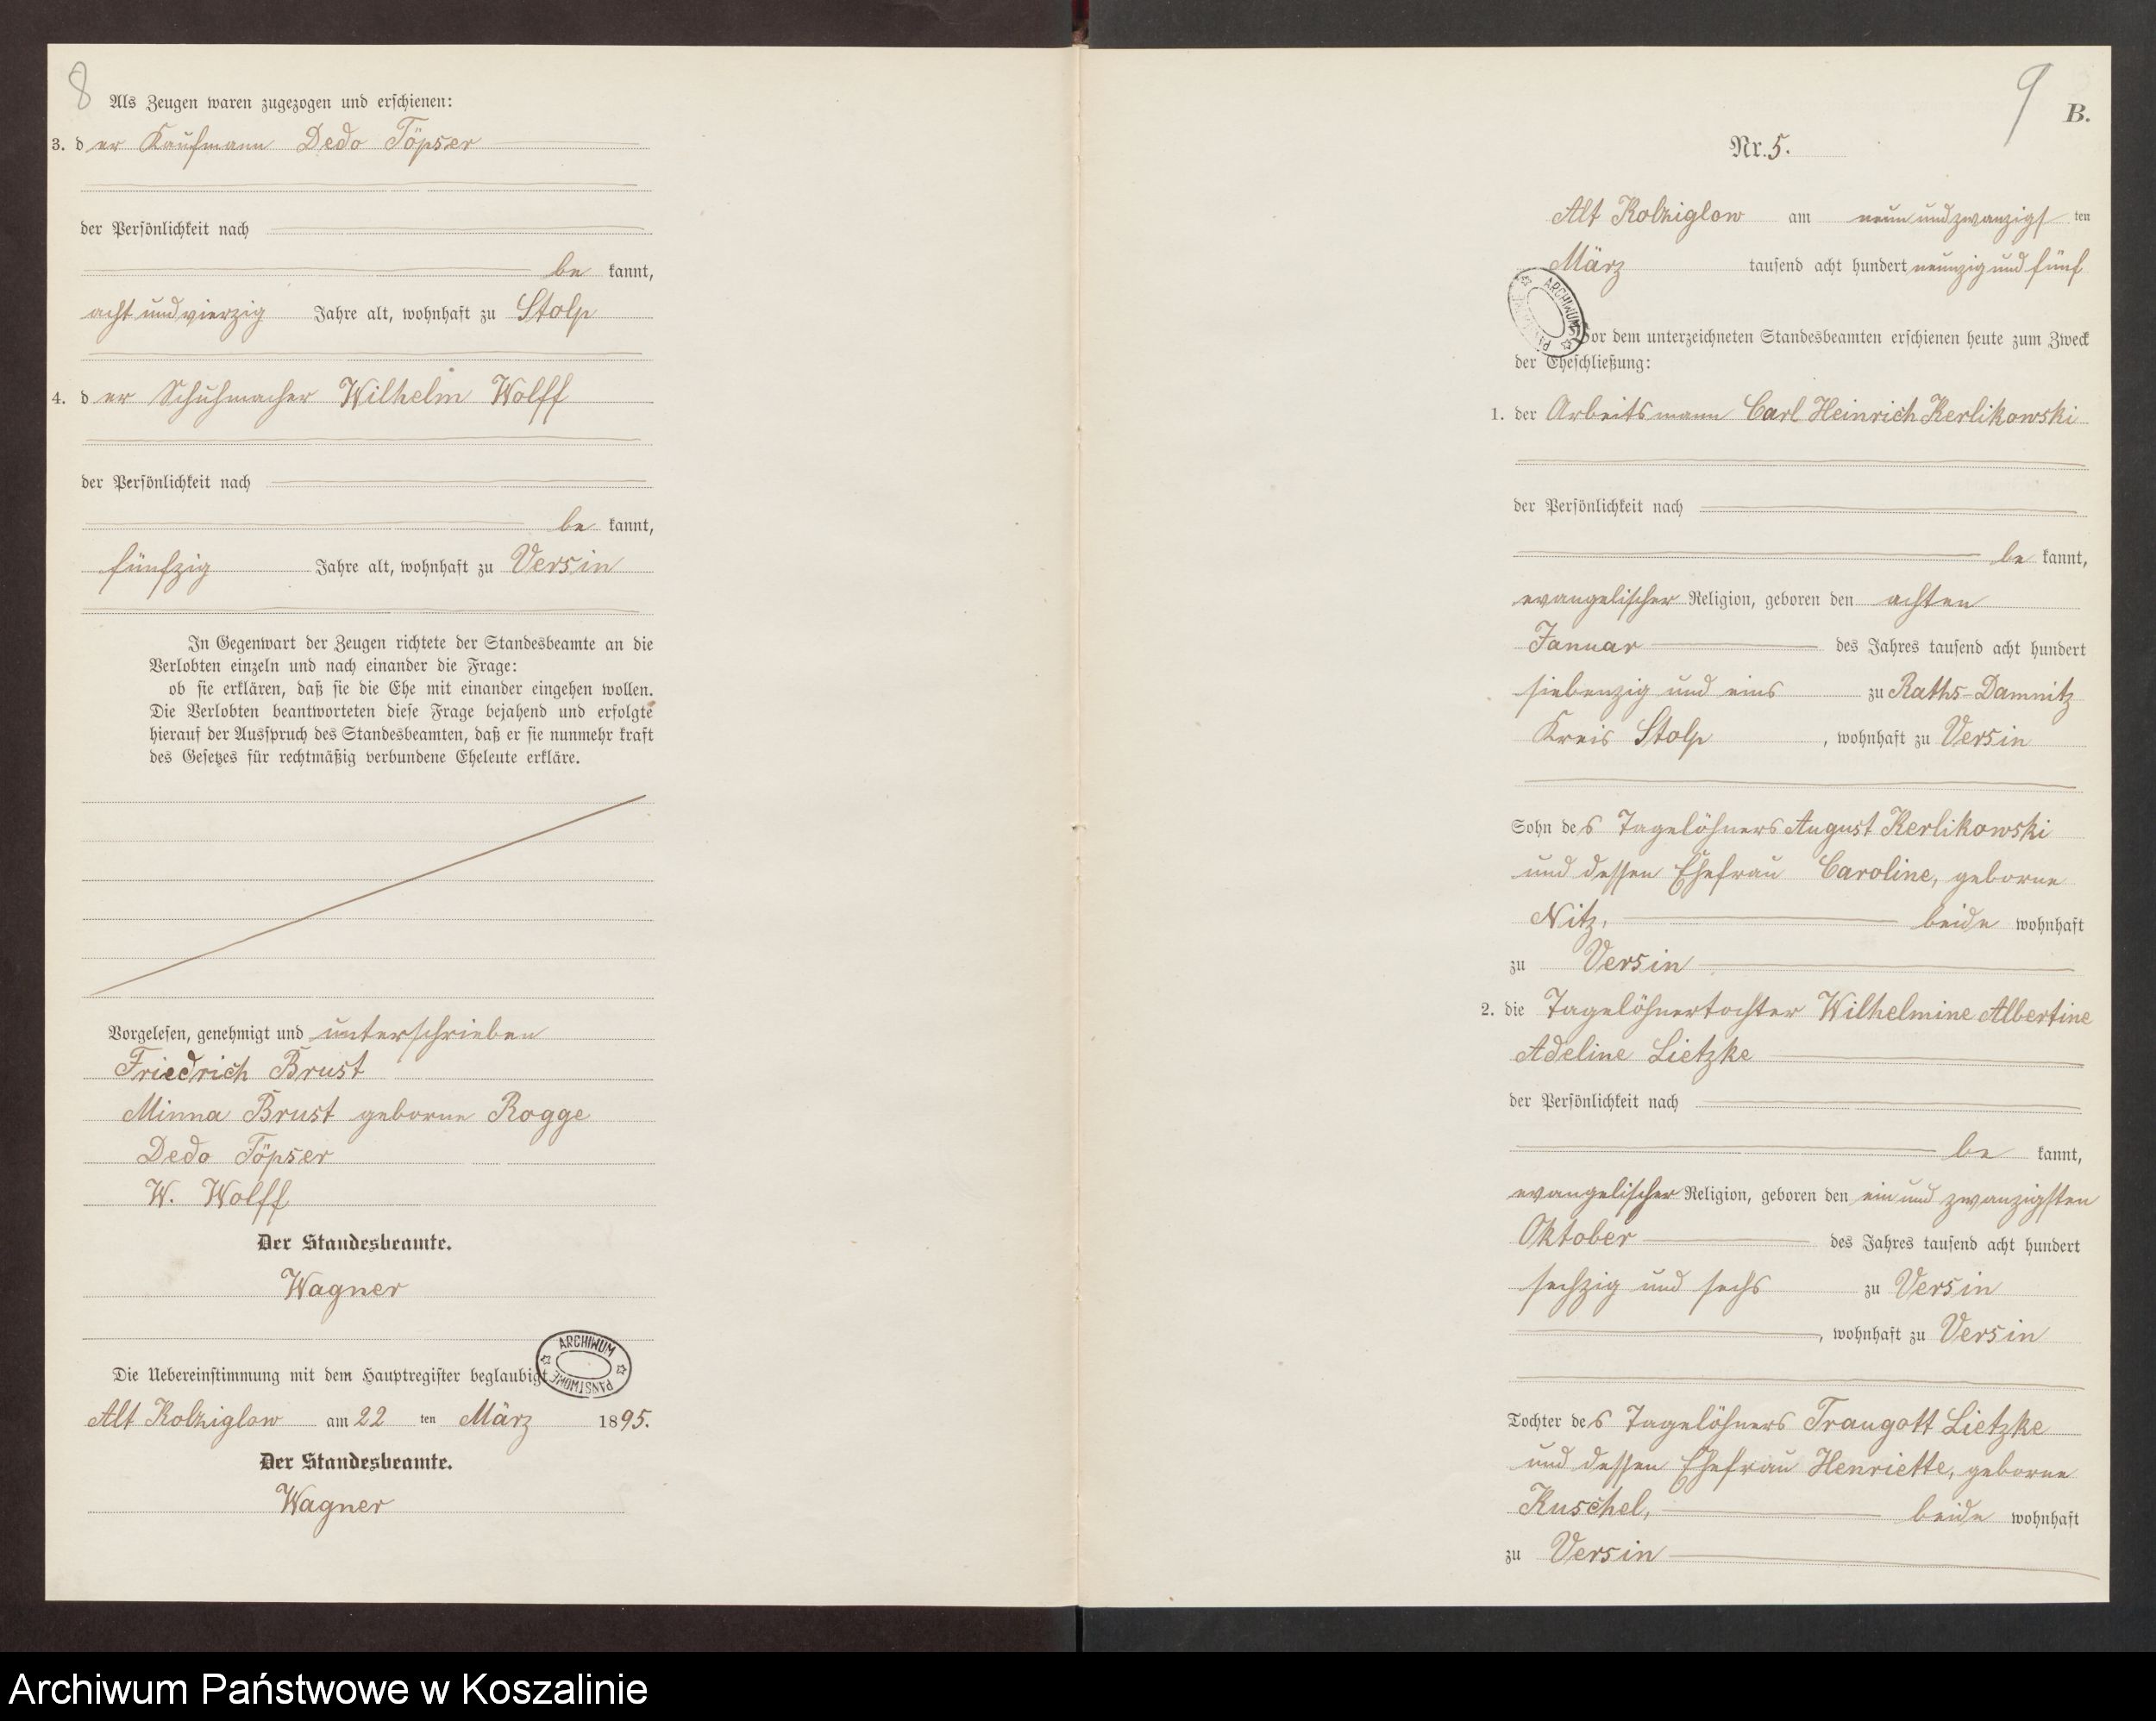 8
Als Zeugen waren zugezogen und erschienen:
3. d er Kaufmann Dedo Töpser
der Persönlichkeit nach
be kannt,
acht und vierzig Jahre alt, wohnhaft zu Stolp
4. d er Schuhmacher Wilhelm Wolff
der Persönlichkeit nach
be kannt,
fünfzig Jahre alt, wohnhaft zu Versin
In Gegenwart der Zeugen richtete der Standesbeamte an die
Verlobten einzeln und nach einander die Frage:
ob sie erklären, daß sie die Ehe mit einander eingehen wollen.
Die Verlobten beantworteten diese Frage bejahend und erfolgte
hierauf der Ausspruch des Standesbeamten, daß er sie nunmehr kraft
des Gesetzes für rechtmäßig verbundene Eheleute erkläre.
Vorgelesen, genehmigt und unterschrieben
Friedrich Brust
Minna Brust geborne Rogge
Dedo Töpser
W. Wolff
Der Standesbeamte.
Wagner
Die Uebereinstimmung mit dem Hauptregister beglaubigt
ARCHIWUM PAŃSTWOWE
Alt Kolziglow am 22 ten März 1895.
Der Standesbeamte.
Wagner
9
B.
Nr. 5.
Alt Kolziglow am neun und zwanzigs ten
März tausend acht hundert neunzig und fünf
ARCHIWUM PAŃSTWOWE
Vor dem unterzeichneten Standesbeamten erschienen heute zum Zweck
der Eheschließung:
1. der Arbeitsmann Carl Heinrich Kerlikowski
der Persönlichkeit nach
be kannt,
evangelischer Religion, geboren den achten
Januar des Jahres tausend acht hundert
siebenzig und eins zu Raths-Damnitz
Kreis Stolp, wohnhaft zu Versin
Sohn des Tagelöhners August Kerlikowski
und dessen Ehefrau Caroline, geborne
Nitz, beide wohnhaft
zu Versin
2. die Tagelöhnertochter Wilhelmine Albertine
Adeline Lietzke
der Persönlichkeit nach
be kannt,
evangelischer Religion, geboren den ein und zwanzigsten
Oktober des Jahres tausend acht hundert
sechzig und sechs zu Versin
, wohnhaft zu Versin
Tochter des Tagelöhners Traugott Lietzke
und dessen Ehefrau Henriette, geborne
Kuschel, beide wohnhaft
zu Versin
Archiwum Państwowe w Koszalinie